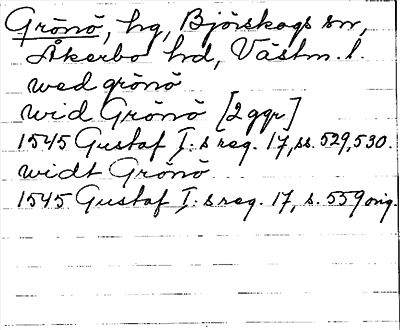 Grönö, hg, Björskogs sn,
Åkerbo hd, Västm. l.
wed grönö
wid Grönö [2 ggr]
1545 Gustaf I:s reg. 17, ss. 529, 530.
widt Grönö
1545 Gustaf I:s reg. 17, s. 559 orig.